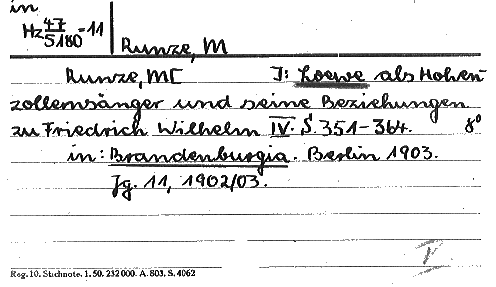 in
Hz 47/5180-11
Runze, M
Runze, M[ J: Loewe als Hohen-
zollernsänger und seine Beziehungen
zu Friedrich Wilhelm IV. S. 351-364. 8°
in: Brandenburgia. Berlin 1903.
Jg. 11, 1902/03.
V
Reg. 10. Stichnote. 1. 50. 232 000. A. 803. S. 4062